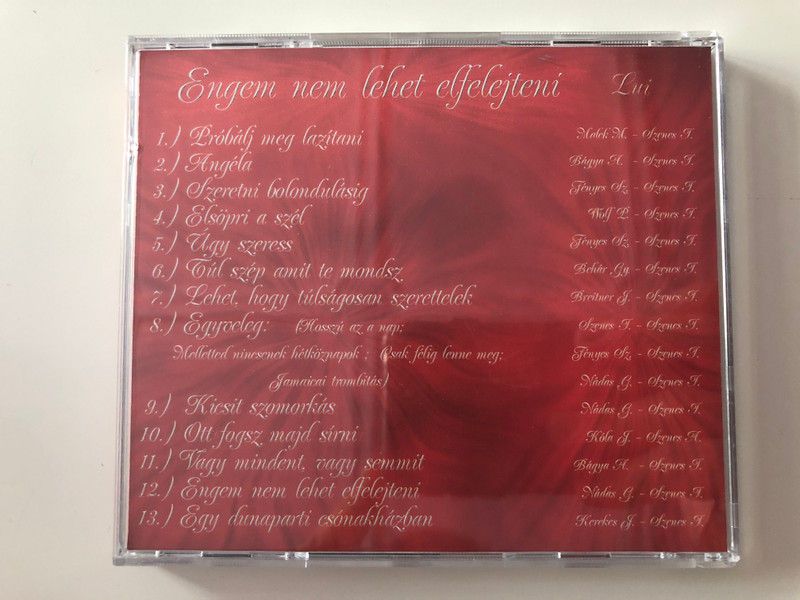 Engem nem lehet elfelejteni Lui
1.) Próbálj meg lazítani Malek M. - Szenes I.
2.) Angéla Bágya A. - Szenes I.
3.) Szeretni bolondulásig Fényes Sz. - Szenes I.
4.) Elsöpri a szél Wolf P. - Szenes I.
5.) Úgy szeress Fényes Sz. - Szenes I.
6.) Túl szép amit te mondsz Behár Gy. - Szenes I.
7.) Lehet, hogy túlságosan szerettelek Breitner J. - Szenes I.
8.) Egyveleg: (Hosszú az a nap; Szenes I. - Szenes I.
Melletted nincsenek hétköznapok ; Csak félig lenne meg; Fényes Sz. - Szenes I.
Jamaicai trombitás) Nádas G. - Szenes I.
9.) Kicsit szomorkás Nádas G. - Szenes I.
10.) Ott fogsz majd sírni Kóla J. - Szenes A.
11.) Vagy mindent, vagy semmit Bágya A. - Szenes I.
12.) Engem nem lehet elfelejteni Nádas G. - Szenes I.
13.) Egy dunaparti csónakházban Kerekes J. - Szenes I.